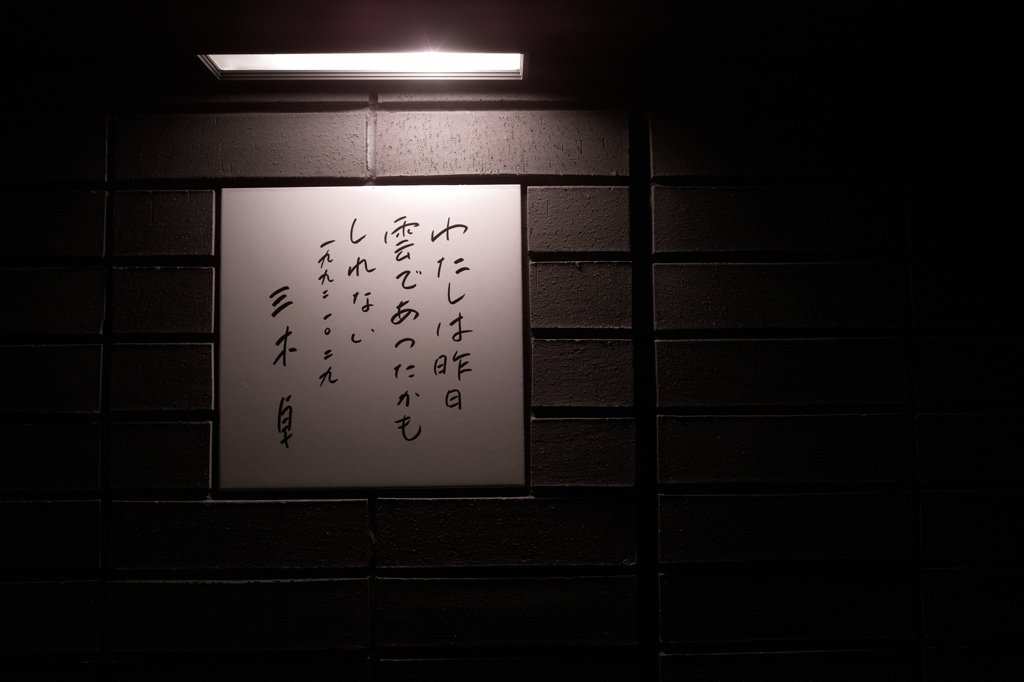 わたしは昨日
雲であったかも
しれない
一九九二・一〇・二九
三木卓